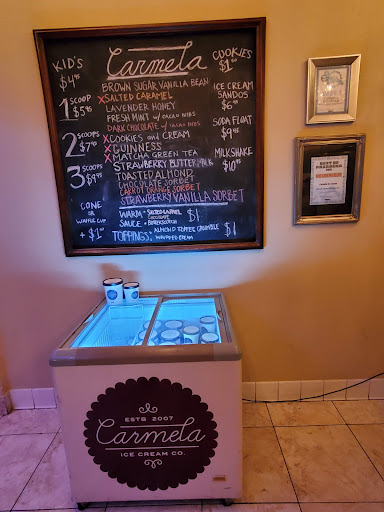 Carmela
KID'S
$4.95
1 SCOOP
$5.95
2 SCOOPS
3 SCOOPS
$9.95
CONE
OR
WAFFLE CUP
+ $1.00
BROWN SUGAR VANILLA BEAN
X SALTED CARAMEL
LAVENDER HONEY
FRESH MINT w/ CACAO NIBS
DARK CHOCOLATE w/ CACAO NIBS
X COOKIES AND CREAM
X GUINNESS
X MATCHA GREEN TEA
STRAWBERRY BUTTERMILK
TOASTED ALMOND
CHOCOLATE SORBET
CARROT ORANGE SORBET
STRAWBERRY VANILLA SORBET
WARM SAUCE - SALTED CARAMEL $1
BUTTERSCOTCH
TOPPINGS: ALMOND TOFFEE CRUMBLE $1
WHIPPED CREAM
COOKIES
ICE CREAM
SANDOS
SODA FLOAT
MILKSHAKE
BEST OF
ESTD 2007
Carmela
ICE CREAM CO.